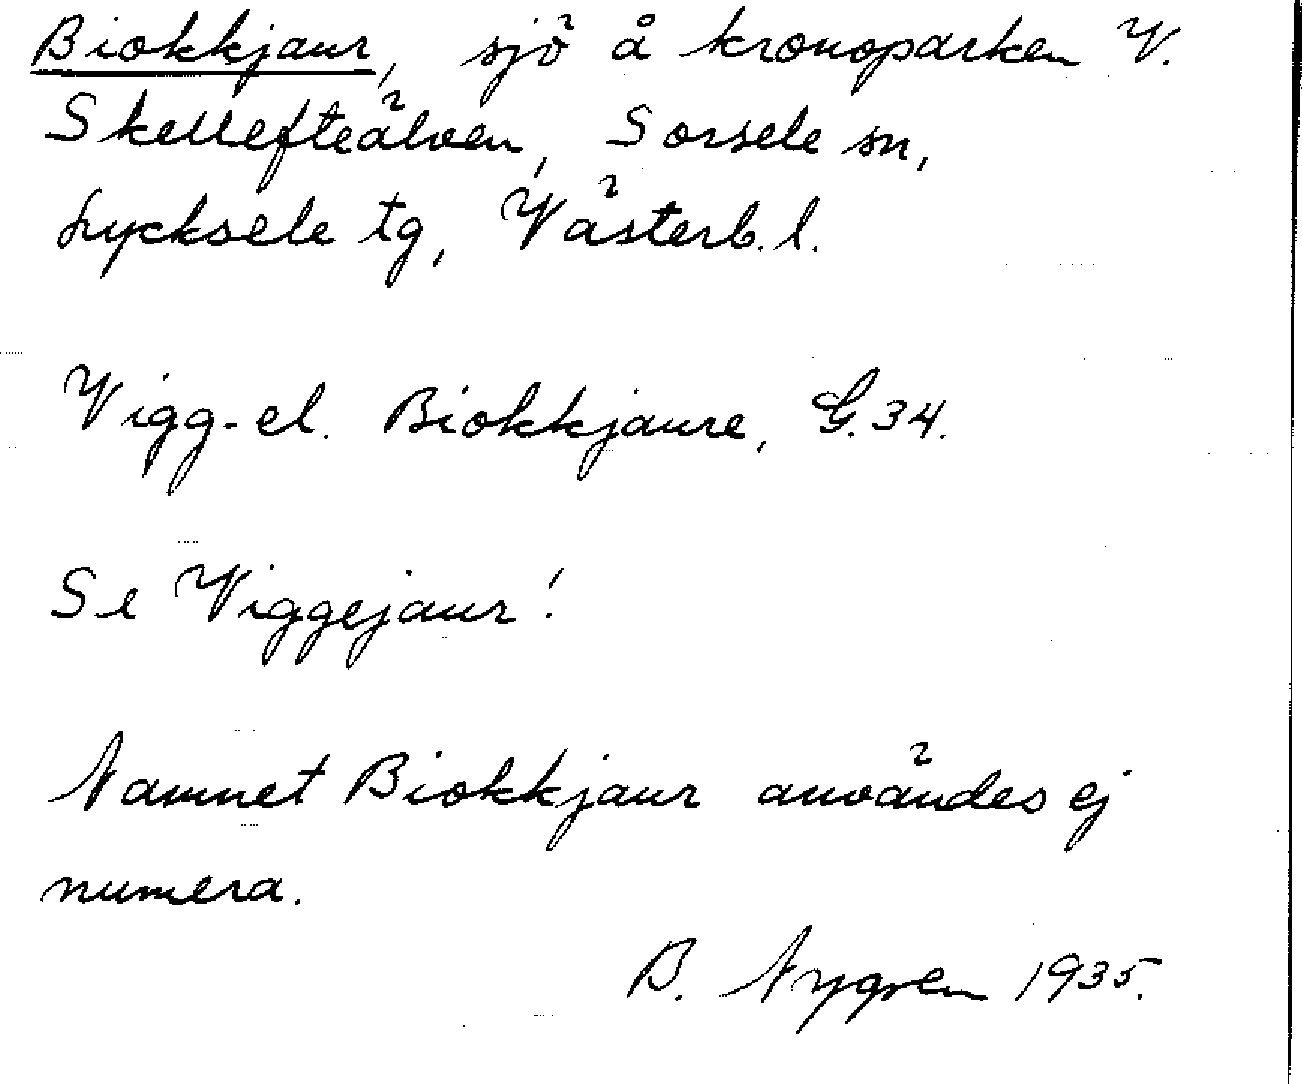 Biokkjaur, sjö å kronoparken V.
Skellefteälven, Sorsele sn,
Lycksele tg, Västerb. l.
Vigg- el. Biokkjaure, G. 34.
Se Viggejaur!
Namnet Biokkjaur användes ej
numera.
B. Nygren 1935.